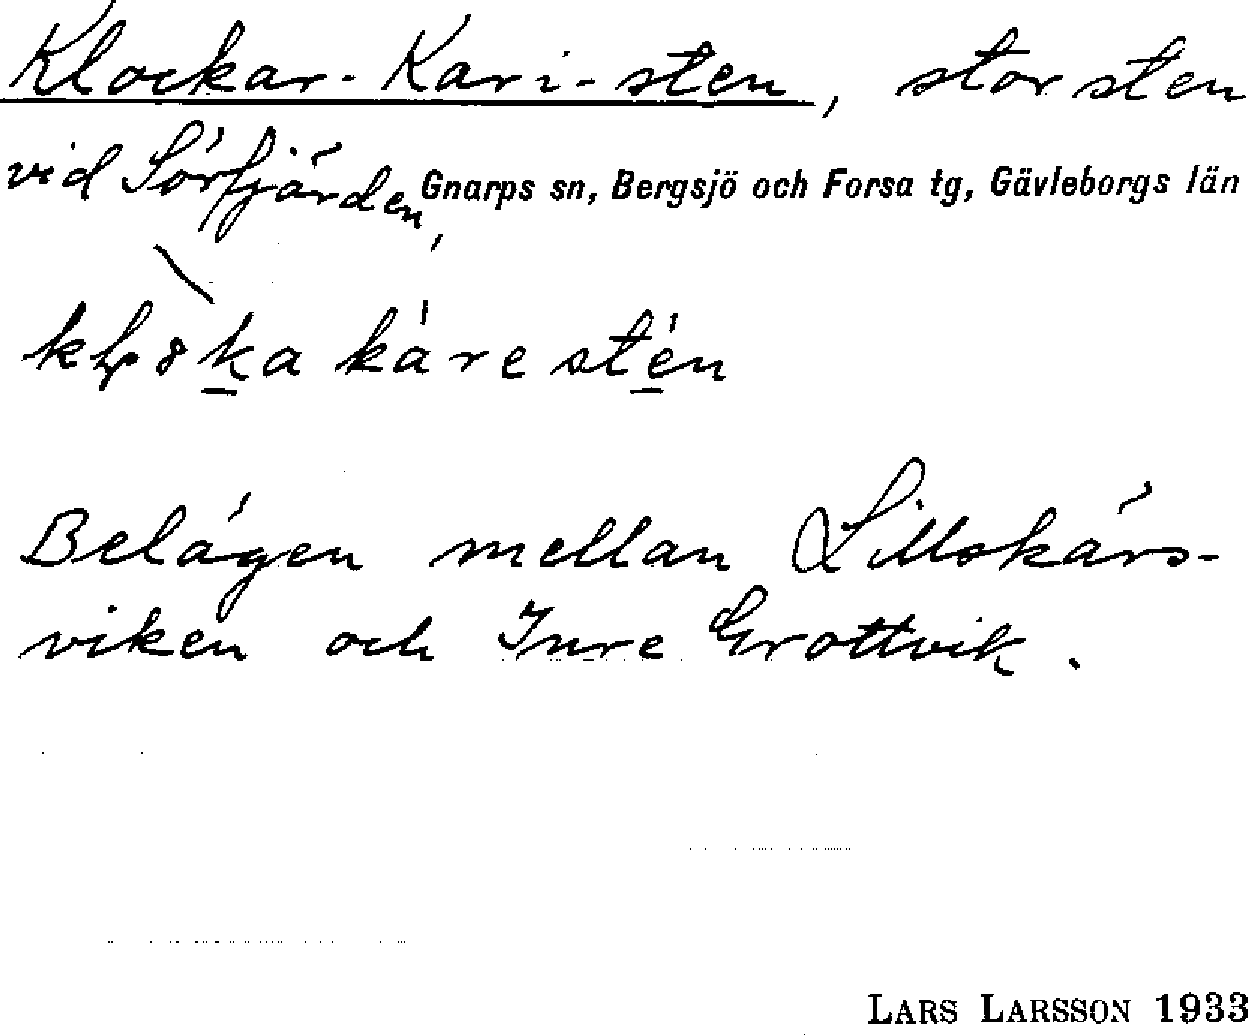 Klockar-Kari-sten, stor sten
vid Sörfjärden, Gnarps sn, Bergsjö och Forsa tg, Gävleborgs län
Belägen mellan Lillskärs-
viken och Inre Grottvik.
LARS LARSSON 1933